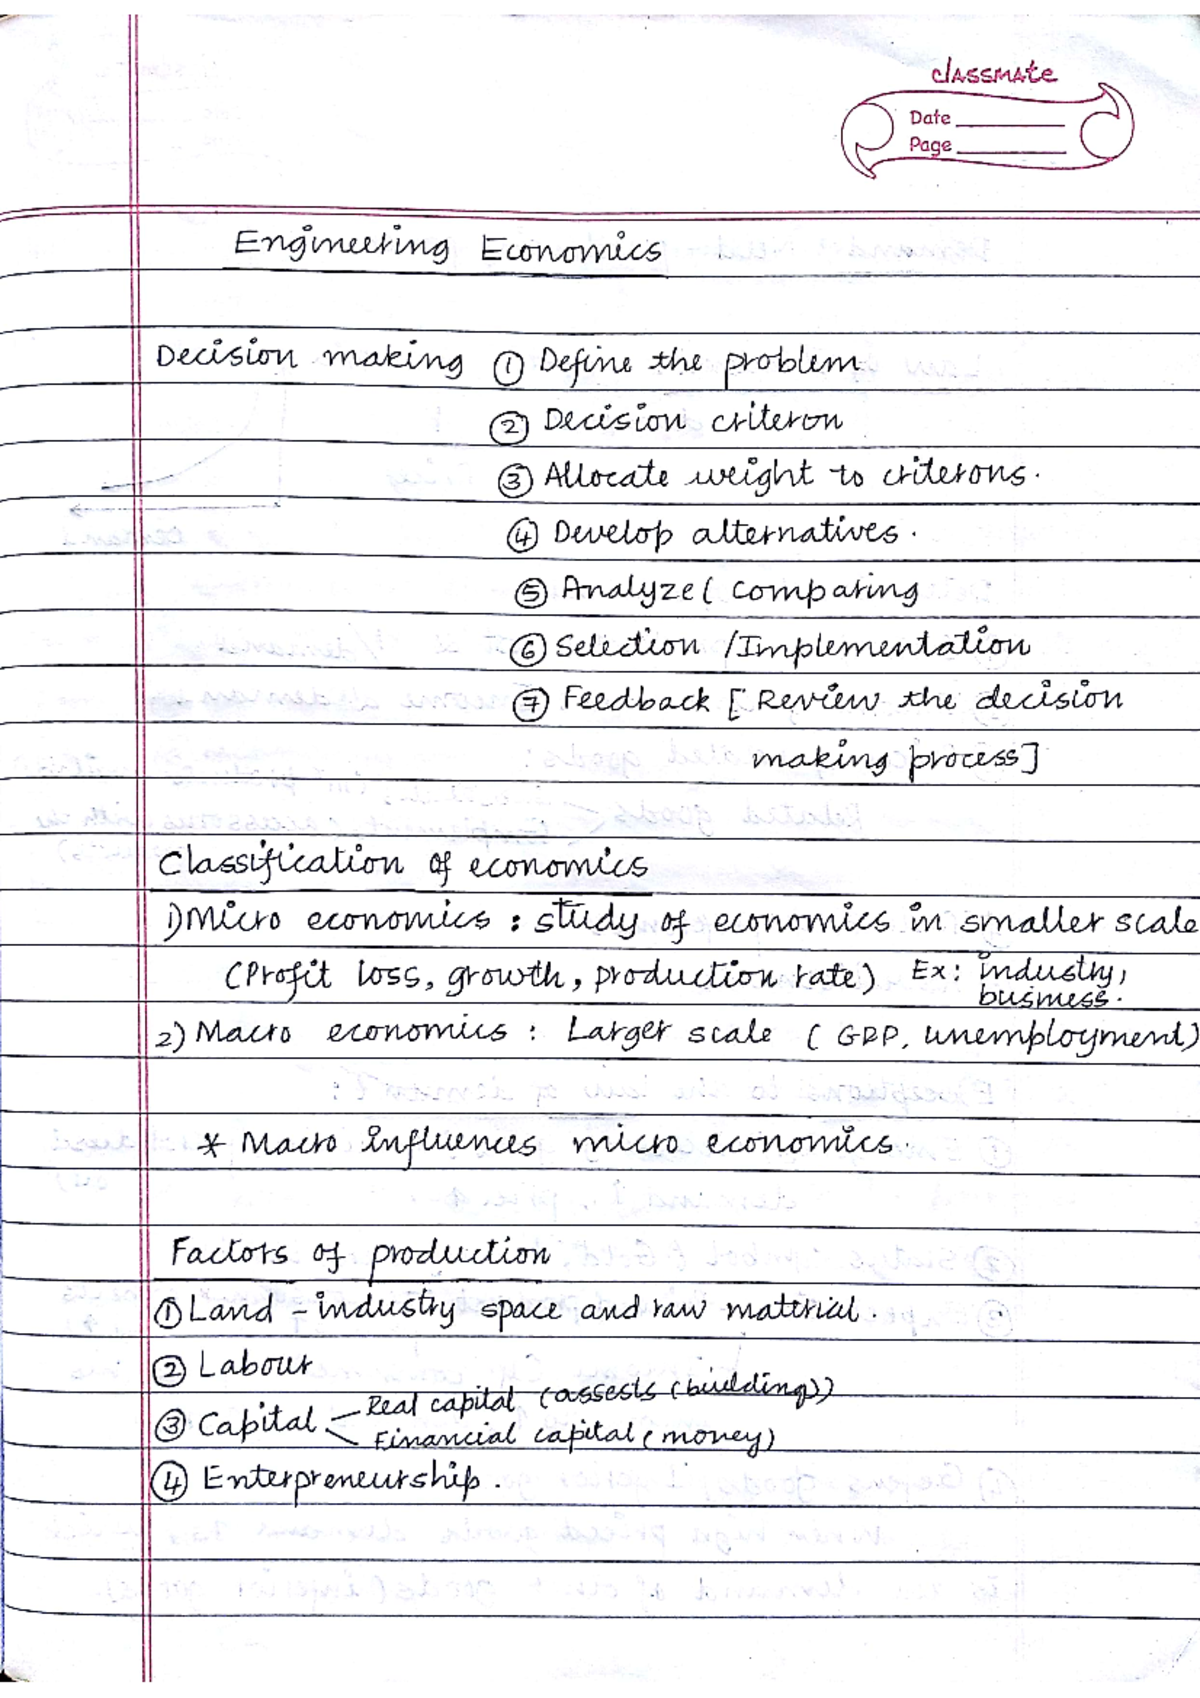 classmate
Date
Page
Engineering Economics
Decision making ① Define the problem
② Decision criteron
③ Allocate weight to criterons.
④ Develop alternatives.
⑤ Analyze ( Comparing
⑥ Selection / Implementation
⑦ Feedback [ Review the decision
making process]
Classification of economics
1) Micro economics : study of economics in smaller scale
(Profit loss, growth, production rate) Ex: industry,
business.
2) Macro economics : Larger scale ( GDP, unemployment)
* Macro influences micro economics.
Factors of production
① Land - industry space and raw material.
② Labour
Real capital (assests (building))
③ Capital
Financial capital (money)
④ Enterpreneurship.